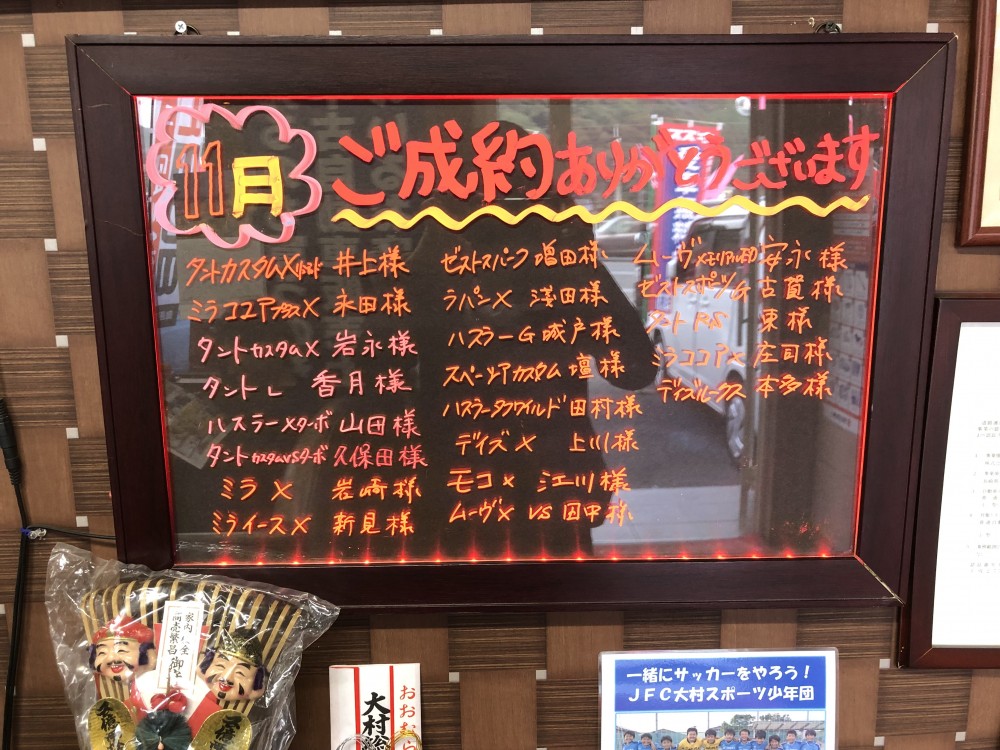 11月
ご成約ありがとうございます
タントカスタムX 井上様
ミラココアプラスX 永田様
タントカスタムX 岩永様
タントL 香月様
ハスラーXターボ 山田様
タントカスタムVSターボ 久保田様
ミラX 岩崎様
ミライースX 新見様
ゼストスパーク 増田様
ラパンX 浅田様
ハスラーG 城戸様
スペーシアカスタム 壇様
ハスラータフワイルド 田村様
デイズX 上川様
モコX 江川様
ムーヴX VS 田中様
ムーヴXメモリアル 安永様
ゼストスポーツG 古賀様
タントRS 東様
ミラココアX 庄司様
デイズルークス 本多様
家内安全
商売繁昌
おおむら
大村
一緒にサッカーをやろう!
JFC大村スポーツ少年団